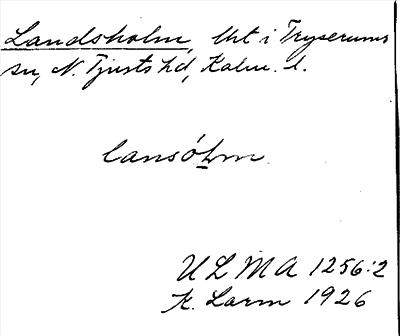 Landsholm, Urt i Tryserums
sn, N. Tjusts hd, Kalm. l.
lansóḻm
ULMA 1256:2
K. Larm 1926